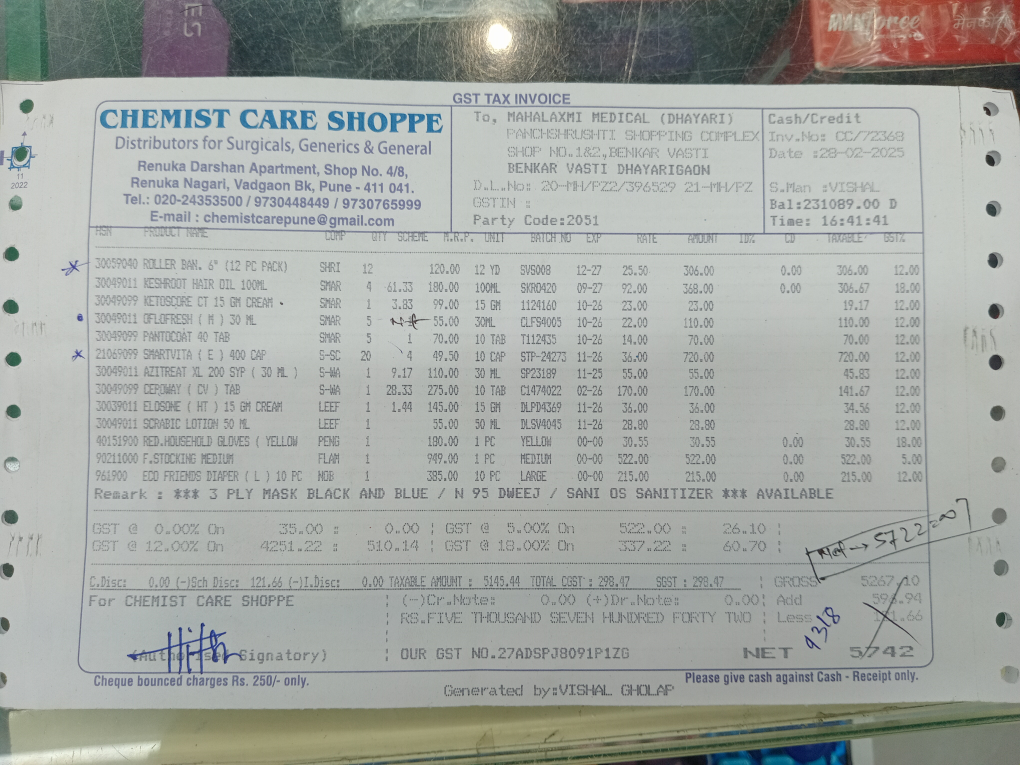 GST TAX INVOICE
CHEMIST CARE SHOPPE
Distributors for Surgicals, Generics & General
Renuka Darshan Apartment, Shop No. 4/8,
Renuka Nagari, Vadgaon Bk, Pune - 411 041.
Tel.: 020-24353500 / 9730448449 / 9730765999
E-mail : chemistcarepune@gmail.com
To, MAHALAXMI MEDICAL (DHAYARI)
PANCHSHRUSHTI SHOPPING COMPLEX
SHOP NO.1&2,BENKAR VASTI
BENKAR VASTI DHAYARIGAON
D.L.No: 20-MH/PZ2/396529 21-MH/PZ
GSTIN :
Party Code:2051
Cash/Credit
Inv.No: CC/72368
Date :28-02-2025
S.Man :VISHAL
Bal:231089.00 D
Time: 16:41:41
HSN PRODUCT NAME COMP QTY SCHEME M.R.P. UNIT BATCH NO EXP RATE AMOUNT ID% CD TAXABLE GST%
30059040 ROLLER BAN. 6" (12 PC PACK) SHRI 12 120.00 12 YD SVS008 12-27 25.50 306.00 0.00 306.00 12.00
30049011 KESHROOT HAIR OIL 100ML SMAR 4 61.33 180.00 100ML SKR0420 09-27 92.00 368.00 0.00 306.67 18.00
30049099 KETOSCORE CT 15 GM CREAM SMAR 1 3.83 99.00 15 GM 1124160 10-26 23.00 23.00 19.17 12.00
30049011 OFLOFRESH ( M ) 30 ML SMAR 5 55.00 30ML CLFS4005 10-26 22.00 110.00 110.00 12.00
30049099 PANTOCOAT 40 TAB SMAR 5 1 70.00 10 TAB T112435 10-26 14.00 70.00 70.00 12.00
21069099 SMARTVITA ( E ) 400 CAP S-SC 20 4 49.50 10 CAP STP-24273 11-26 36.00 720.00 720.00 12.00
30049011 AZITREAT XL 200 SYP ( 30 ML ) S-WA 1 9.17 110.00 30 ML SP23189 11-25 55.00 55.00 45.83 12.00
30049099 CEPOWAY ( CV ) TAB S-WA 1 28.33 275.00 10 TAB C1474022 02-26 170.00 170.00 141.67 12.00
30039011 ELOSONE ( HT ) 15 GM CREAM LEEF 1 1.44 145.00 15 GM DLPD4369 11-26 36.00 36.00 34.56 12.00
30049011 SCRABIC LOTION 50 ML LEEF 1 55.00 50 ML DLSV4045 11-26 28.80 28.80 28.80 12.00
40151900 RED.HOUSEHOLD GLOVES ( YELLOW PENG 1 180.00 1 PC YELLOW 00-00 30.55 30.55 0.00 30.55 18.00
90211000 F.STOCKING MEDIUM FLAM 1 949.00 1 PC MEDIUM 00-00 522.00 522.00 0.00 522.00 5.00
961900 ECO FRIENDS DIAPER ( L ) 10 PC NOB 1 385.00 10 PC LARGE 00-00 215.00 215.00 0.00 215.00 12.00
Remark : *** 3 PLY MASK BLACK AND BLUE / N 95 DWEEJ / SANI OS SANITIZER *** AVAILABLE
GST @ 0.00% On 35.00 : 0.00 | GST @ 5.00% On 522.00 : 26.10 |
GST @ 12.00% On 4251.22 : 510.14 | GST @ 18.00% On 337.22 : 60.70 |
C.Disc: 0.00 (-)Sch Disc: 121.66 (-)I.Disc: 0.00 TAXABLE AMOUNT : 5145.44 TOTAL CGST : 298.47 SGST : 298.47
GROSS 5267.10
Add 596.94
Less 121.66
For CHEMIST CARE SHOPPE
(-)Cr.Note: 0.00 (+)Dr.Note: 0.00
RS.FIVE THOUSAND SEVEN HUNDRED FORTY TWO
9318
(Authorised Signatory)
OUR GST NO.27ADSPJ8091P1ZG
NET 5742
Cheque bounced charges Rs. 250/- only.
Generated by:VISHAL GHOLAP
Please give cash against Cash - Receipt only.